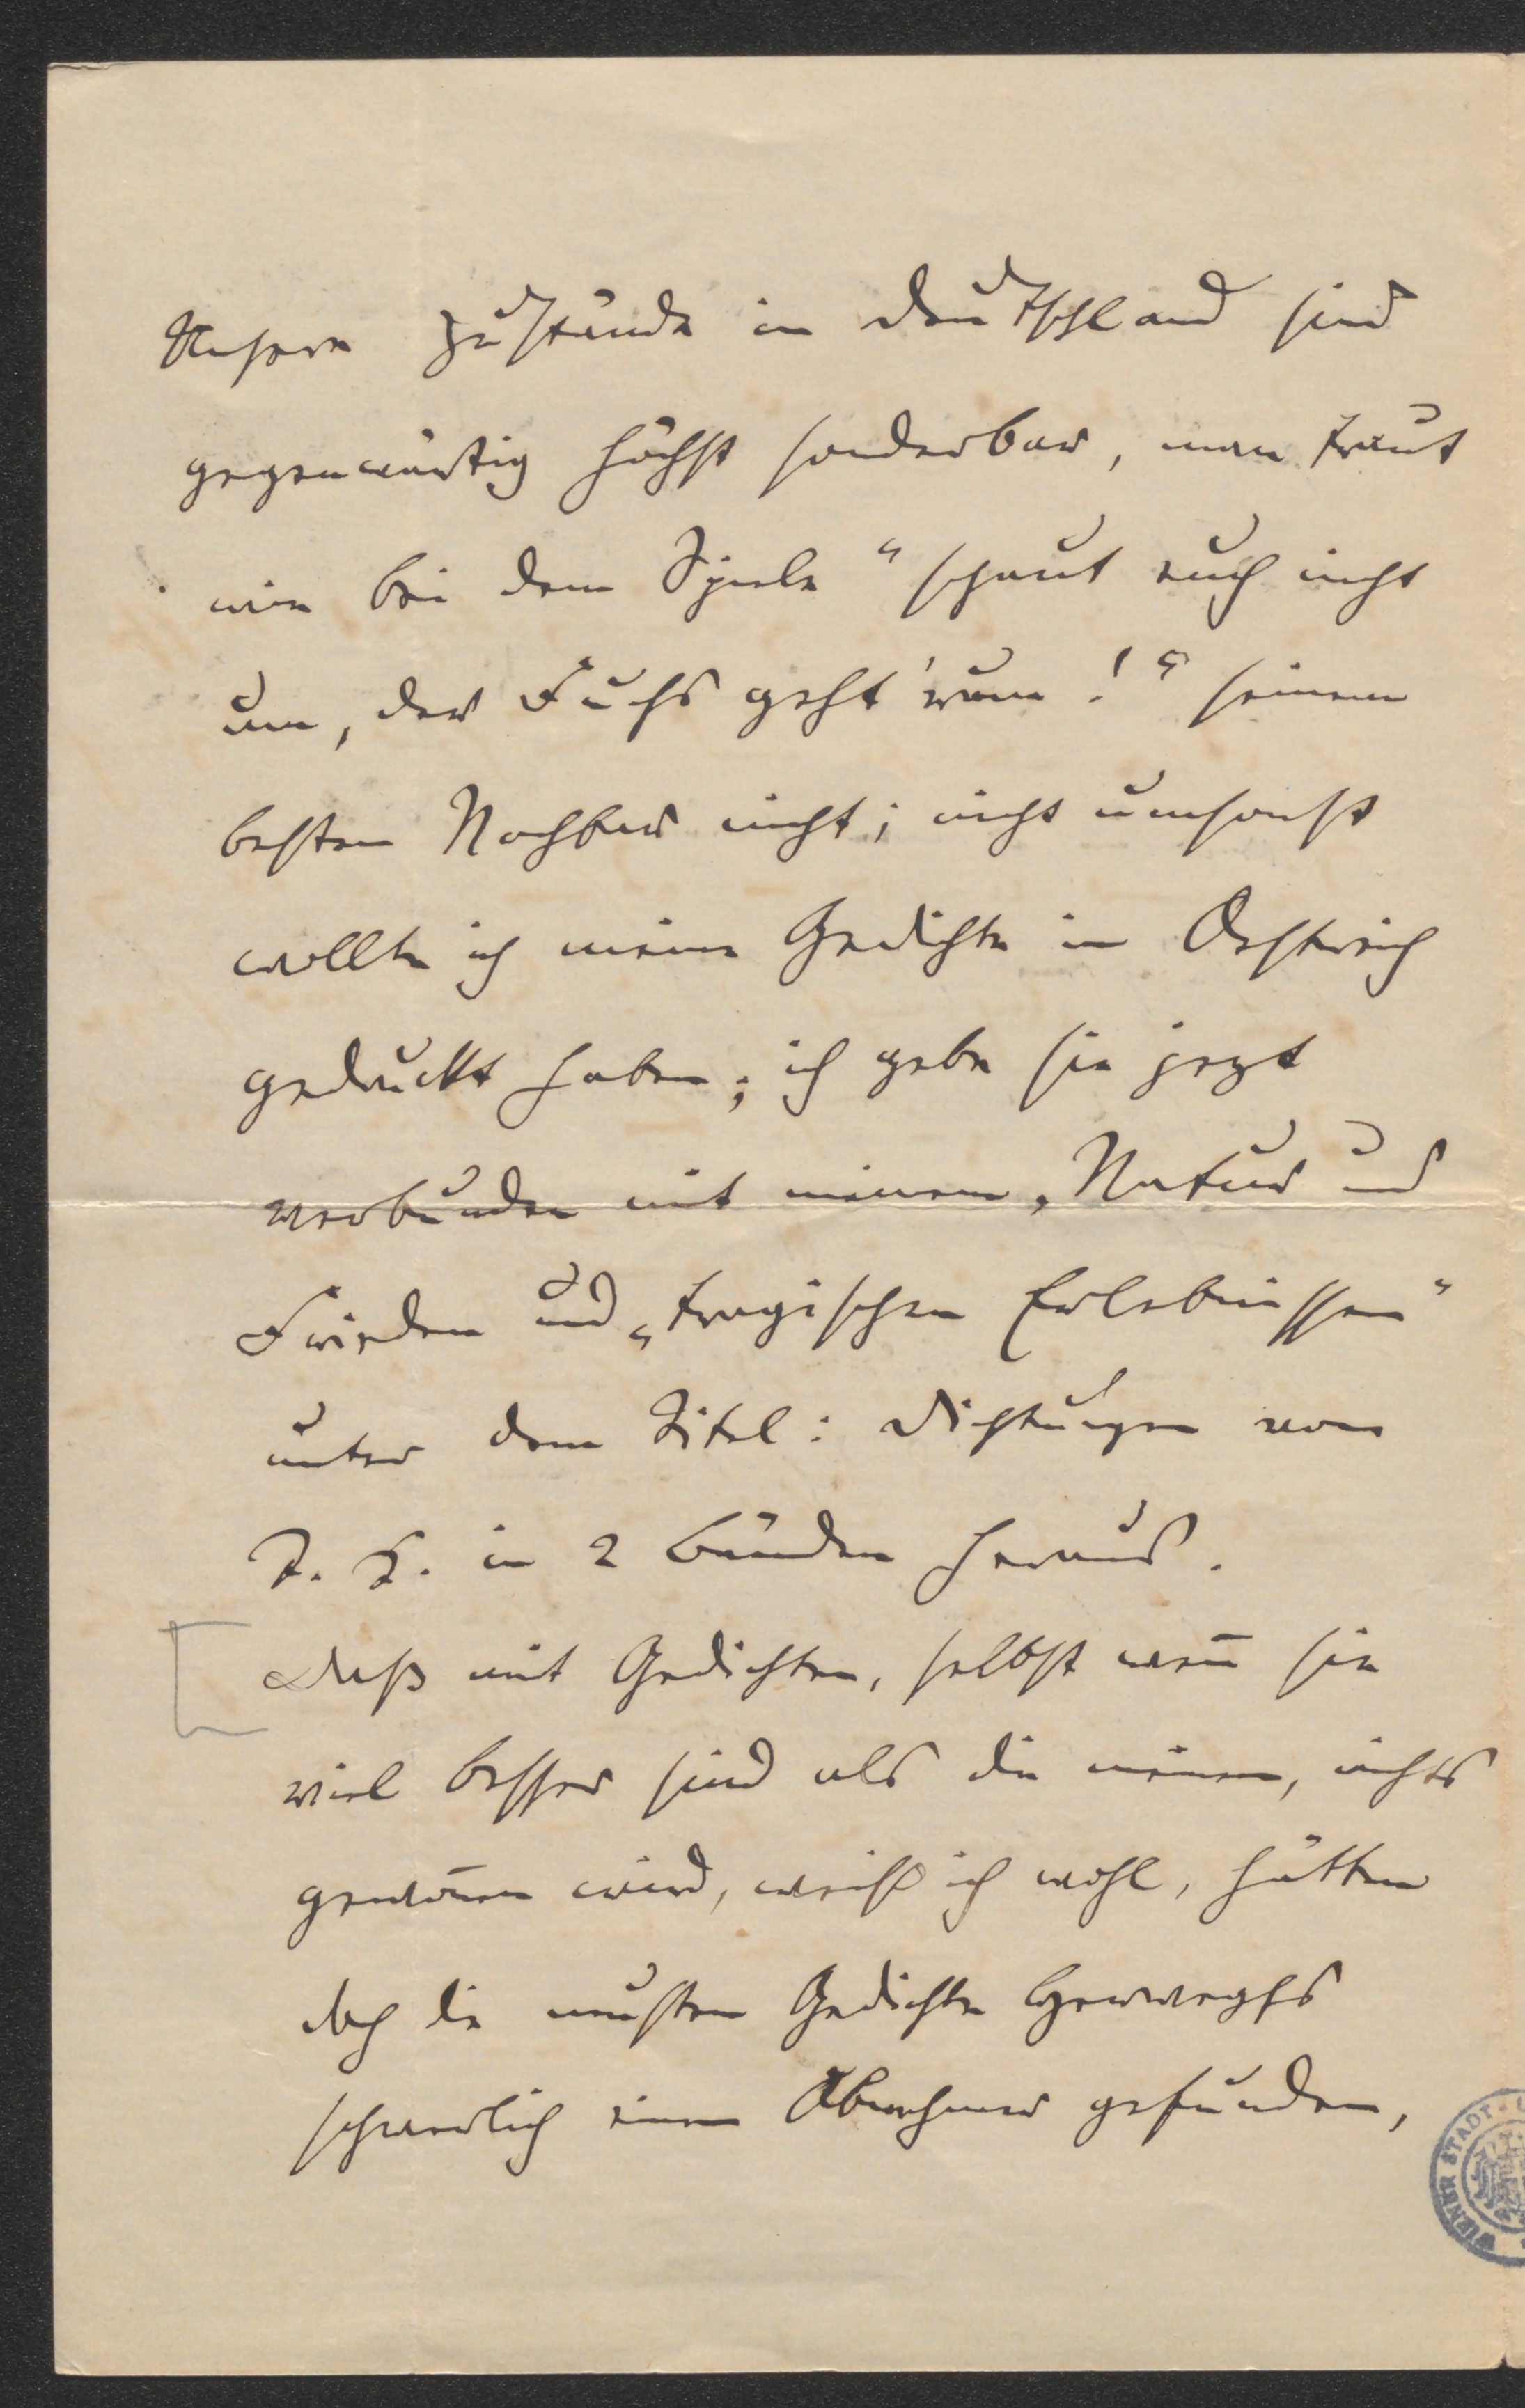 Unsere Zustände in Deutschland sind
gegenwärtig höchst sonderbar, man traut
wie bei dem Spiele "schaut euch nicht
um, der Fuchs geht 'rum!" seinem
besten Nachbar nicht; nicht umsonst
wollte ich meine Gedichte in Oestreich
gedruckt haben; ich gebe sie jezt
verbunden mit meinem „Natur und
Frieden und „tragischen Erlebnissen"
unter dem Titel: Dichtungen von
in 2 Bänden heraus.
Daß mit Gedichten, selbst wen̄ sie
viel besser sind als die meinen, nichts
gewon̄en wird, weiß ich wohl, hätten
doch die neusten Gedichte Herweghs
schwerlich einen Abnehmer gefunden,
WIENER STADT-